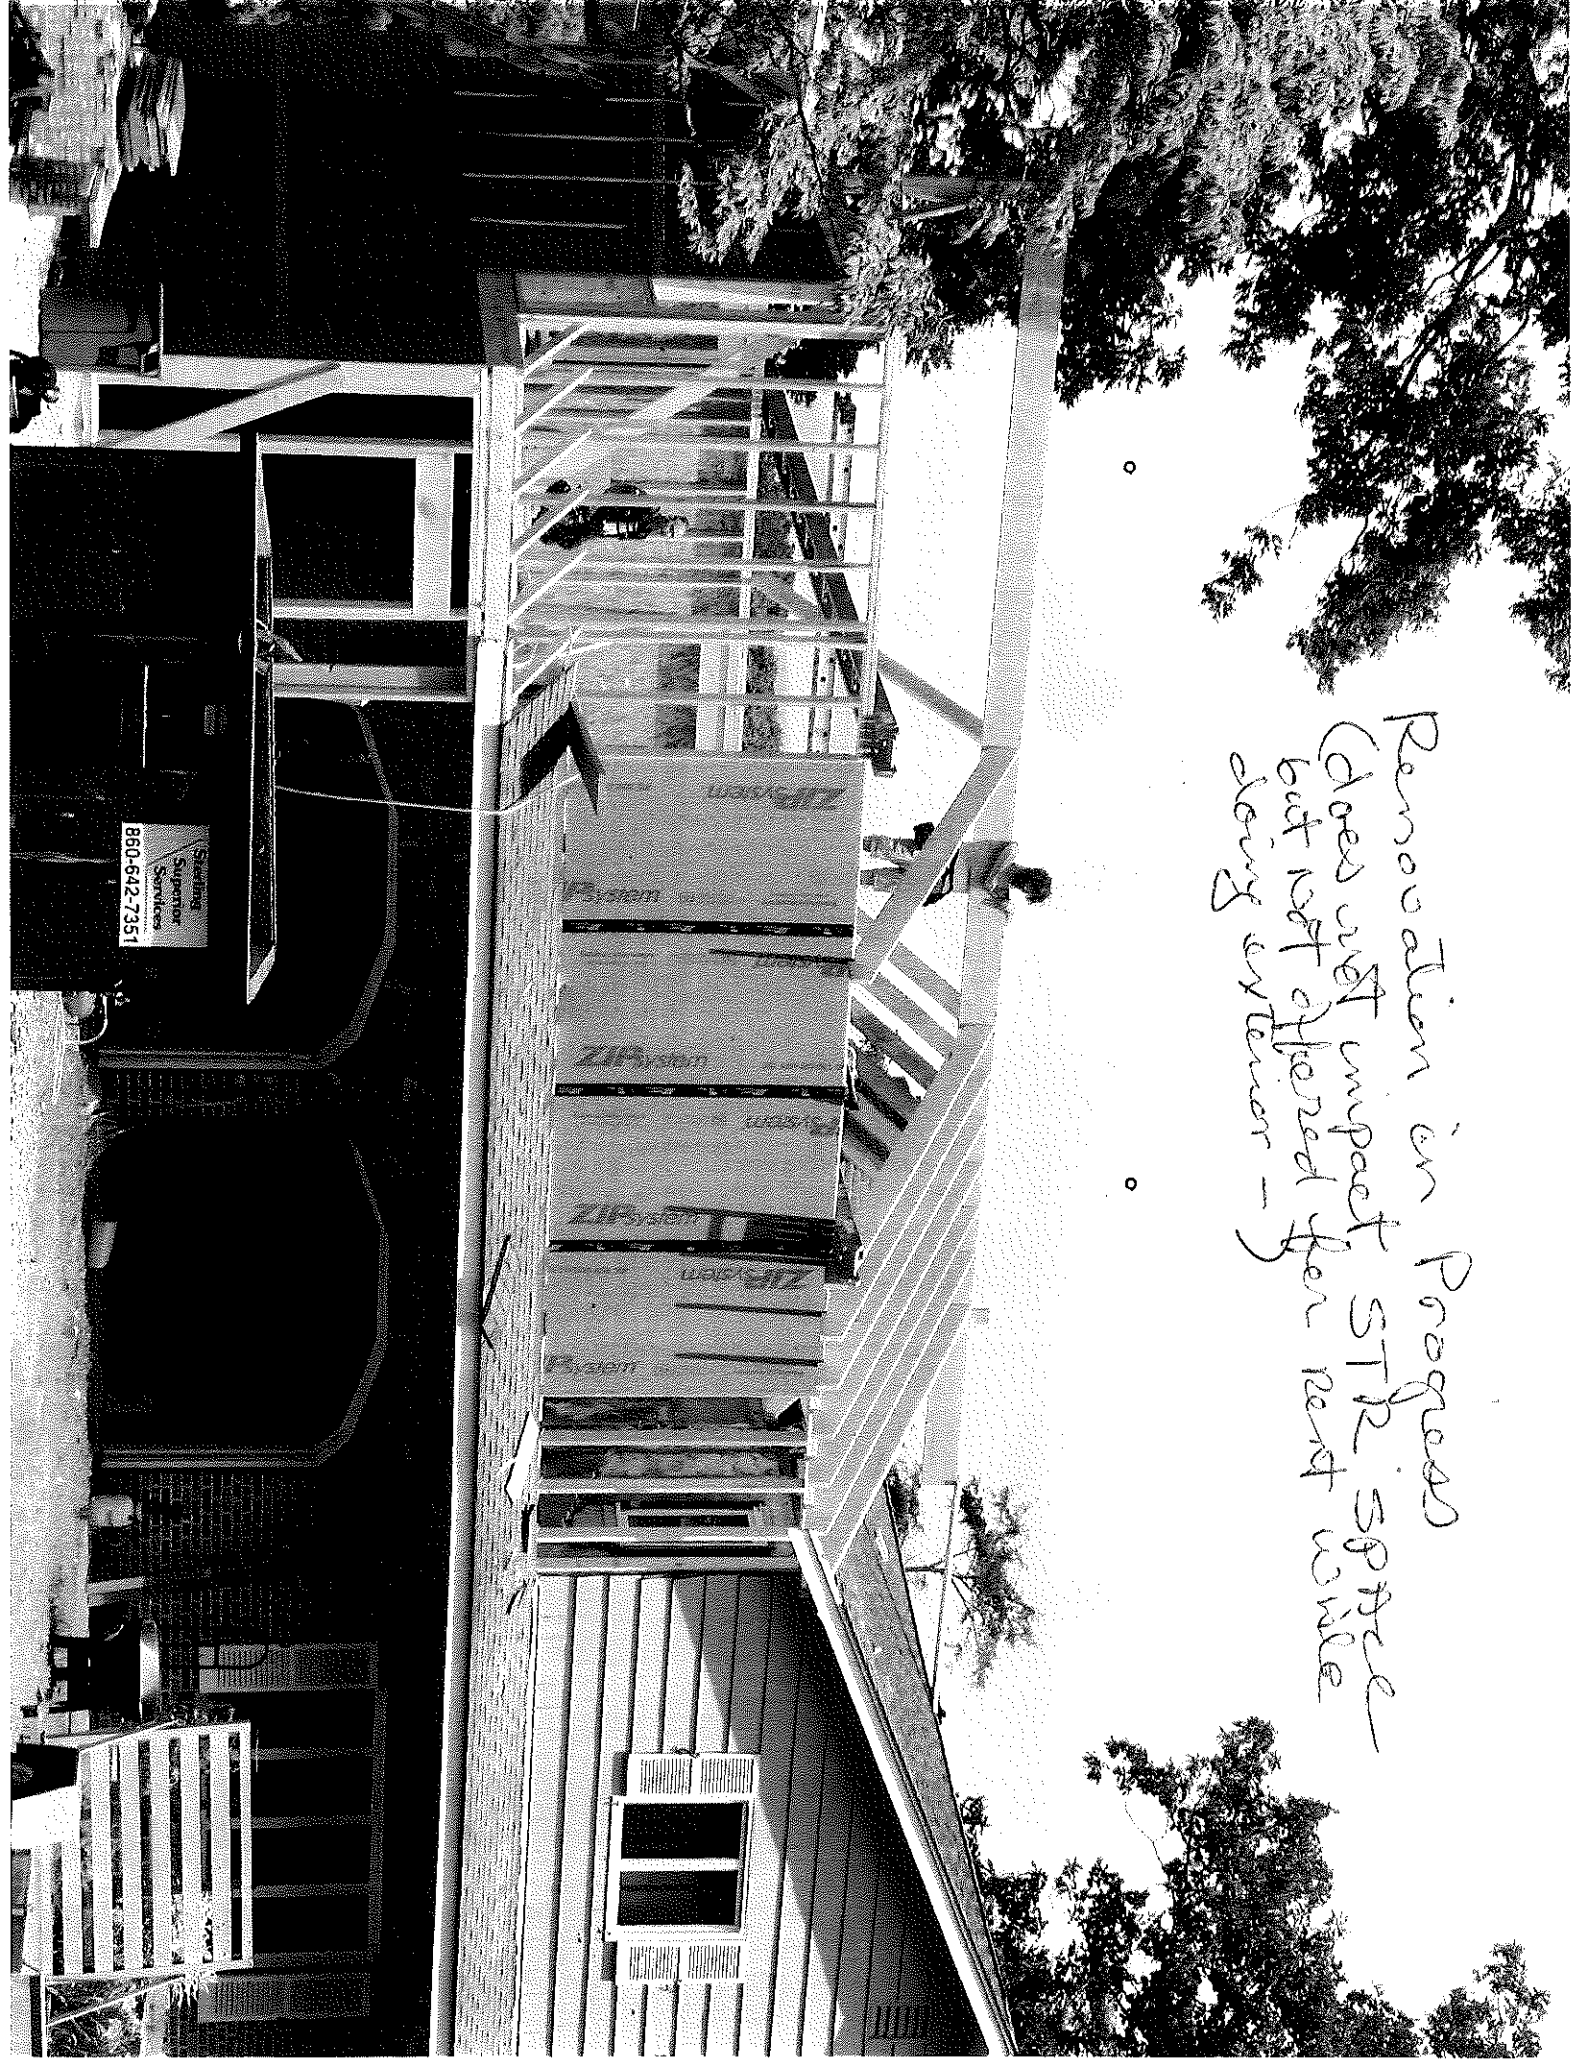 Renovation in Progress
(does not impact STR space
but not offered for rent while
doing exterior -)
ZIPsystem
ZIPsystem
ZIPsystem
ZIPsystem
ZIPsystem
Sterling
Superior
Services
860-642-7351